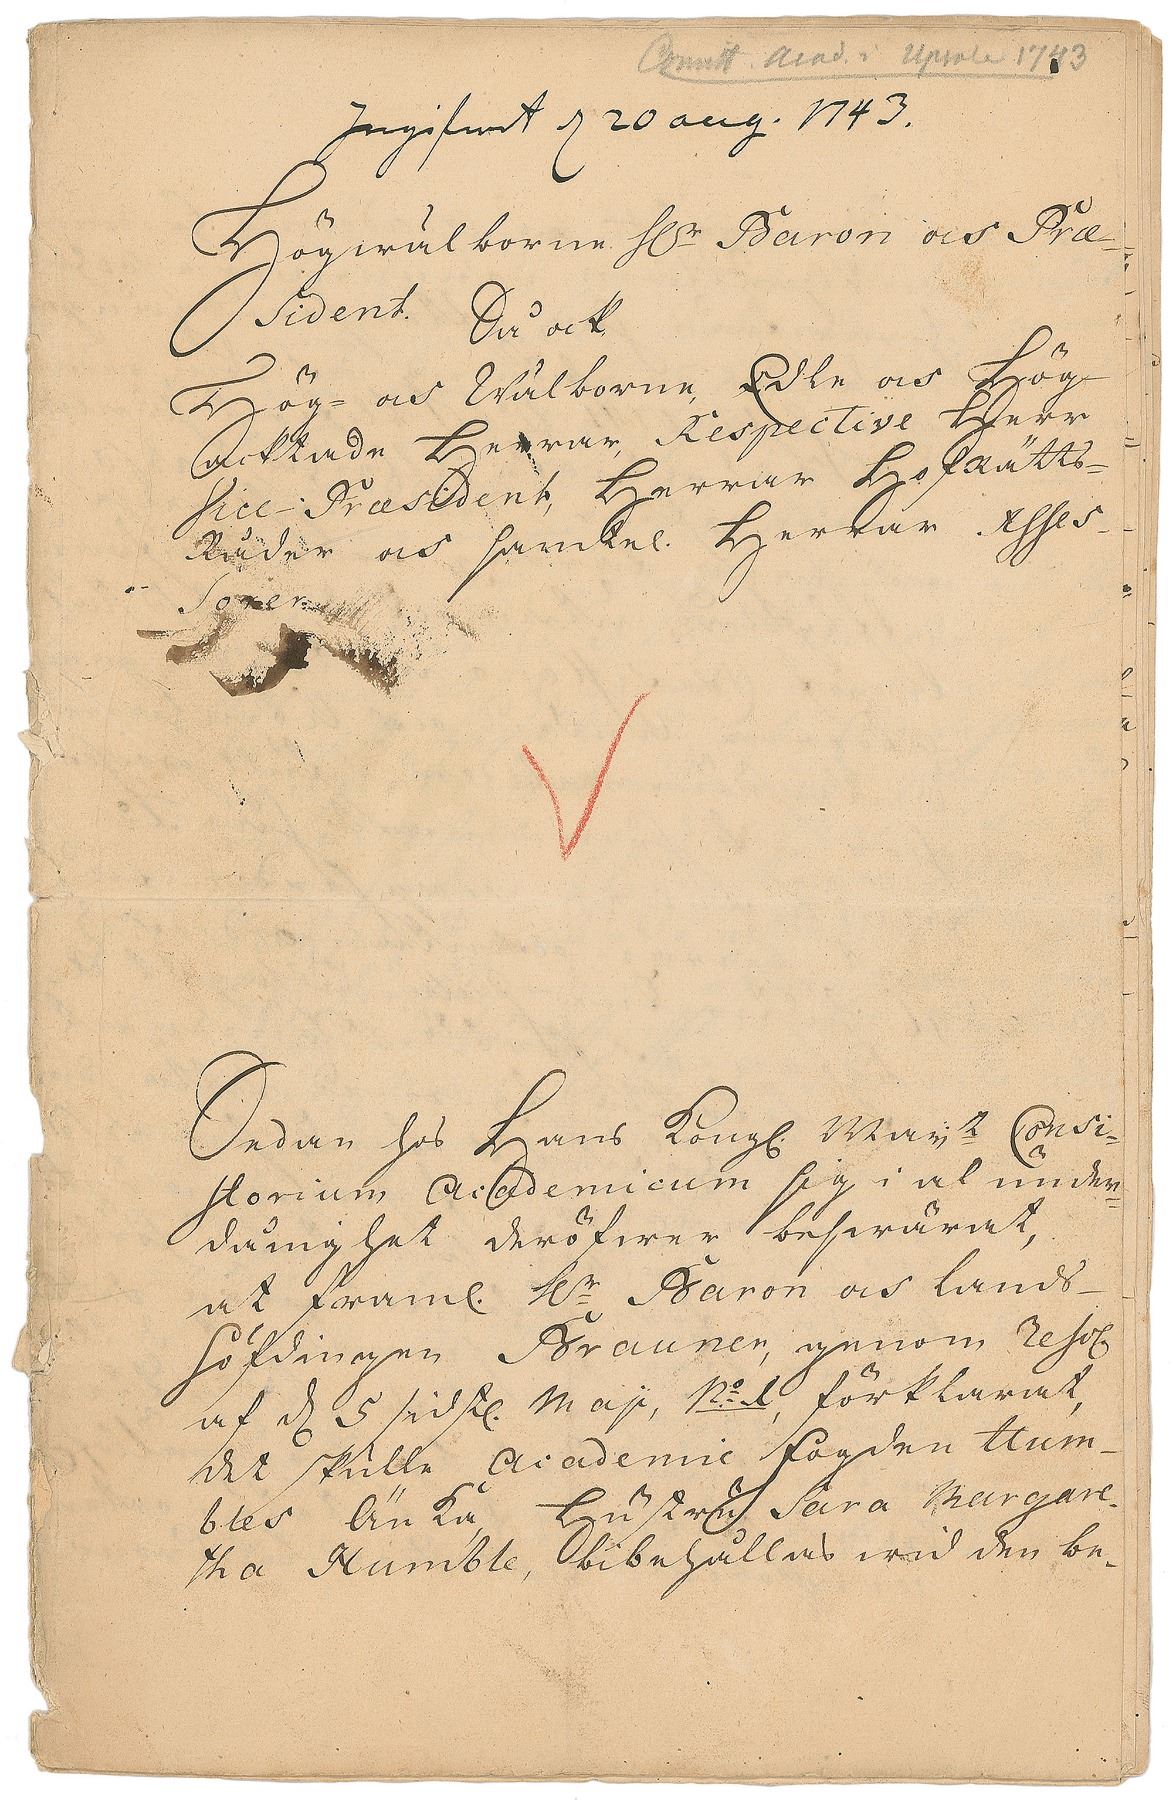 Comitt. Acad. i Upsala 1743
Ingifwit d 20 aug. 1743.
Högwälborne Hr Baron oc Præ-
sident. Så ock
Hög- oc Wälborne, Edle oc Hög
acktade Herrar, Respective Herr
Vice-Præsident, Herrar HofRätts-
Råder oc samtel. Herrar Asses-
sorer
Sedan hos Hans Kongl. Maijt Consi-
storium Academicum sig i al under-
dånighet deröfwer beswärat,
at framl. Hr Baron oc Lands-
höfdingen Brauner, genom Resol
af d 5 sidstl. Maji, No 1, förklarat,
det skulle Academie Fogden Hum-
bles Änka, Hustru Sara Margare-
tha Humble, bibehållas wid den be-